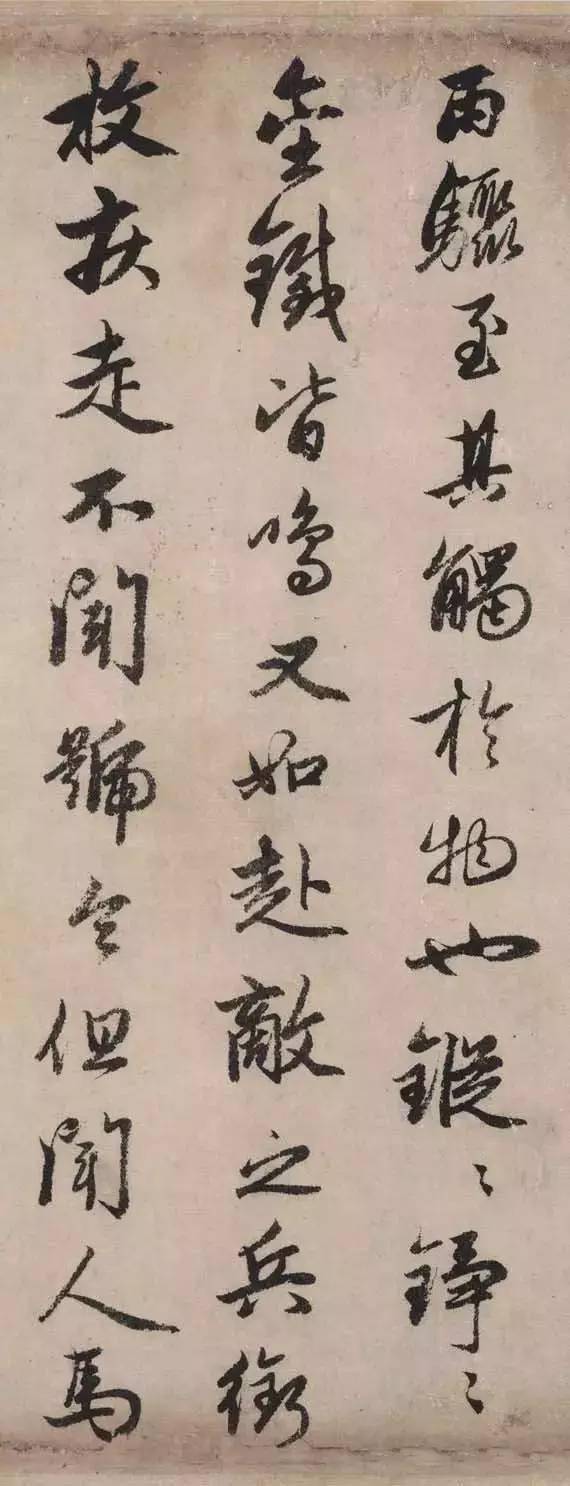 雨驟至其觸於物也鏦〻錚〻
金鐵皆鳴又如赴敵之兵銜
枚疾走不聞號令但聞人馬